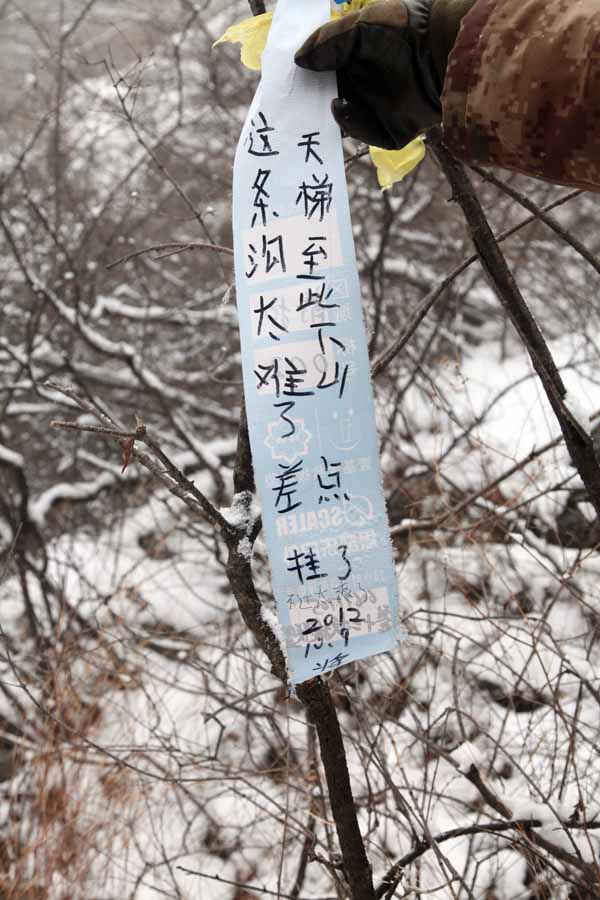 天梯至此下山
这条沟太难了
差点
挂了
2012
10.9
SCALER